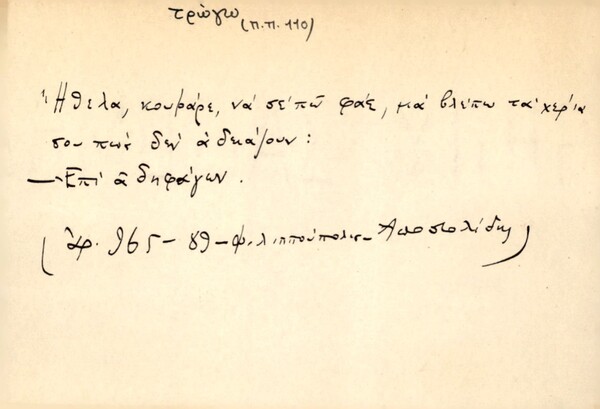 τρώγω
(Π.Π. 110)
Ἤθελα, κουμπάρε, νά σέ πῶ φάε, μά βλέπω τά χέρια
σου πώς δέν ἀδειάζουν:
—Ἐπί ἀδηφάγων.
(ἀρ. 965 – 89 – Φιλιππούπολις – Ἀποστολίδης)